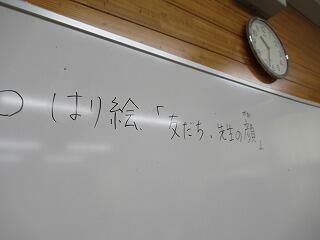 ○ はり絵「友だち、先生の顔」